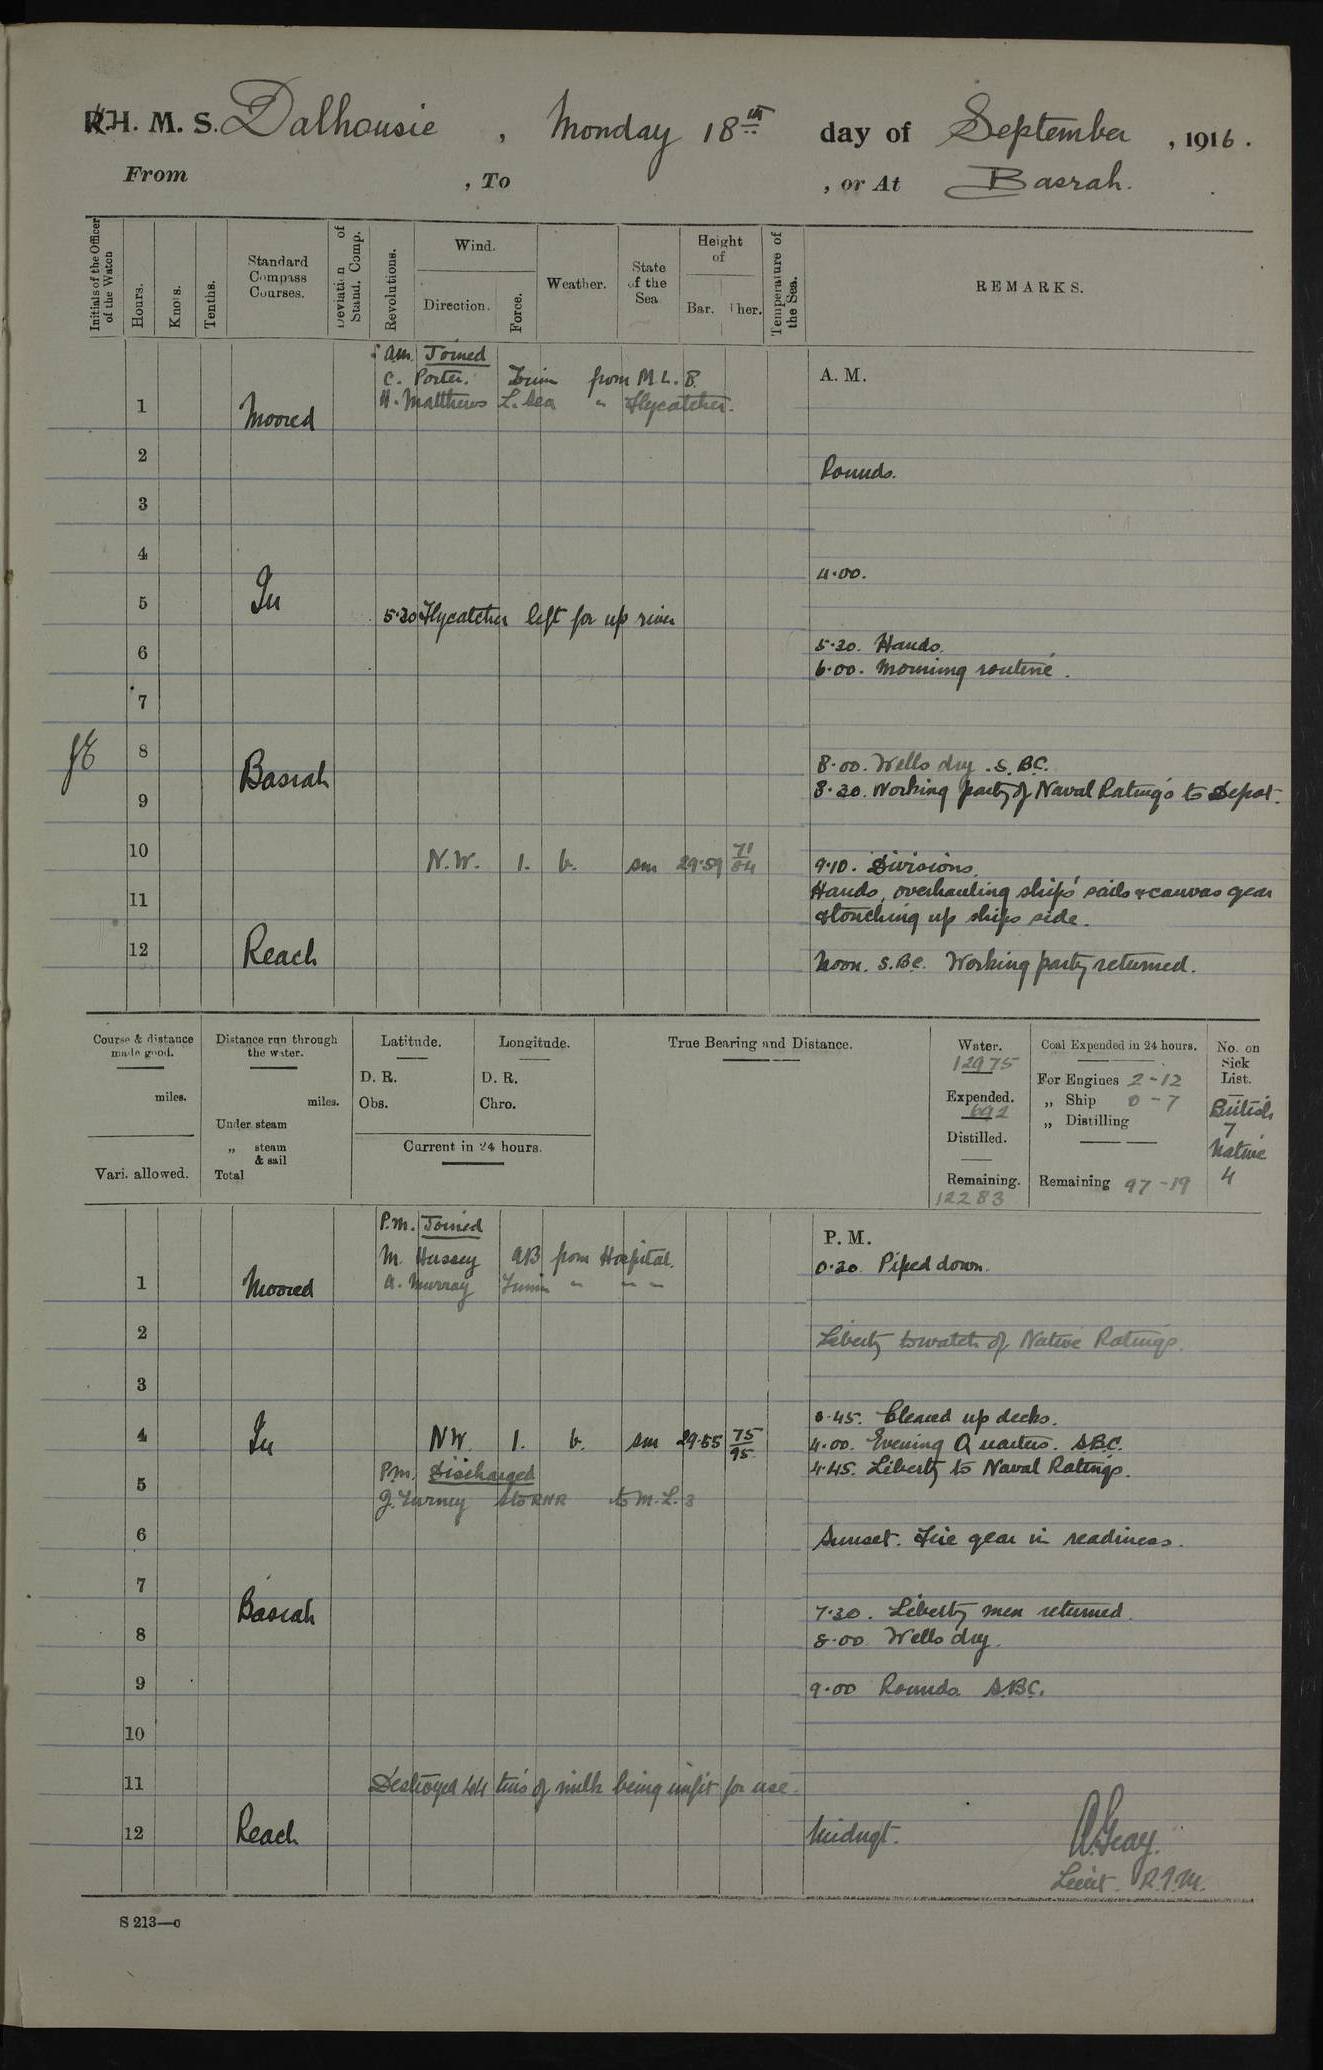 H. M. S. Dalhousie , Monday 18th day of September , 1916 .
From , To , or At Basrah.
Initials of the Officer of the Watch
Hours.
Knots.
Tenths.
Standard Compass Courses.
Deviation of Stand. Comp.
Revolutions.
Wind.
Direction.
Force.
Weather.
State of the Sea
Height of
Bar. Ther.
Temperature of the Sea.
REMARKS.
am. Joined
C. Porter. from M.L. 8.
H. Matthews L. Sea " Flycatcher.
A. M.
1 Moored
2
Rounds.
3
4
4.00.
5 In
5.30 Flycatcher left for up river
5.30. Hands.
6
6.00. Morning routine.
7
8 Basrah
8.00. Wells dry. S.B.C.
9
8.30. Working party of Naval Ratings to Depot.
10 N.W. 1. b. sm 29.59 71/84
9.10. Divisions.
11
Hands, overhauling ships' sails & canvas gear
& touching up ships side.
12 Reach
Noon. S.B.C. Working party returned.
Course & distance made good.
miles.
Vari. allowed.
Distance run through the water.
miles.
Under steam
„ steam & sail
Total
Latitude.
D. R.
Obs.
Longitude.
D. R.
Chro.
Current in 24 hours.
True Bearing and Distance.
Water.
12975
Expended.
692
Distilled.
Remaining.
12283
Coal Expended in 24 hours.
For Engines 2-12
„ Ship 0-7
„ Distilling
Remaining 97-19
No. on Sick List.
British
7
Native
4
P.M. Joined
M. Hussey AB from Hospital.
A. Murray " " "
P. M.
0.30 Piped down.
1 Moored
2
Liberty to watch of Native Ratings.
3
Cleared up decks.
4 In NW. 1. b. sm 29.55 75/95
4.00. Evening Quarters. S.B.C.
P.M. Discharged
4.45. Liberty to Naval Ratings.
5
Sto RNR to M.L. 3
6
Sunset. Fire gear in readiness.
7
Basrah
7.30. Liberty men returned.
8
8.00 Wells dry.
9
9.00 Rounds S.B.C.
10
11
Destroyed tins of milk being unfit for use.
12 Reach
Midngt.
A. Gray.
Lieut. R.I.M.
S 213—c